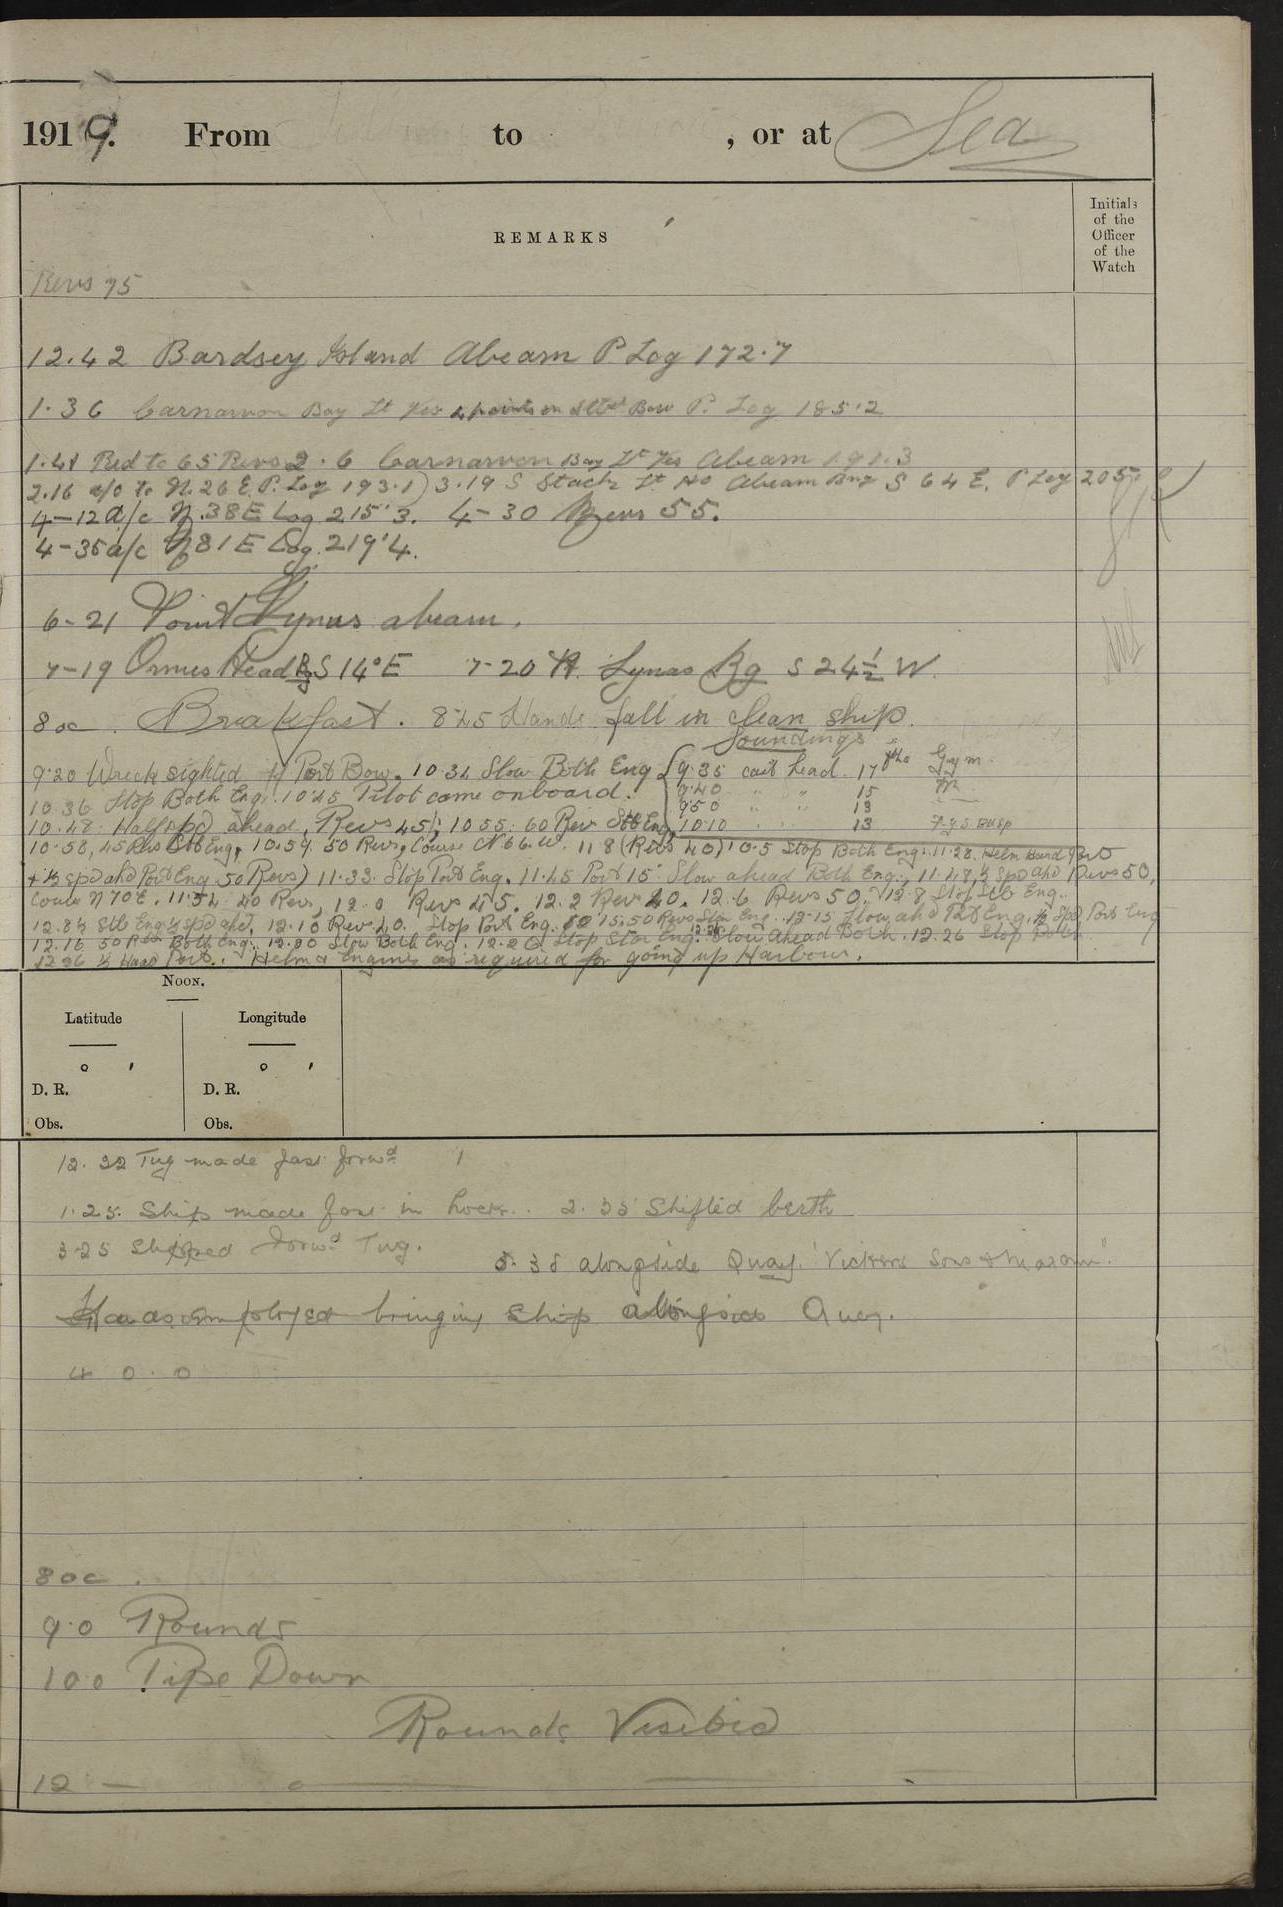 1919. From to , or at Sea
REMARKS
Initials of the Officer of the Watch
Revs 75
12.42 Bardsey Island Abeam P. Log 172.7
1.36 Carnarvon Bay Lt Ves 4 points on Stbd Bow P. Log 185.2
1.48 Red to 65 Revs 2.6 Carnarvon Bay Lt Ves Abeam 191.3
2.16 a/c to N.26 E. P. Log 193.1) 3.19 S Stack Lt Ho Abeam Brg S 64 E. P Log 205.
4-12 a/c N.38E Log 215'3. 4-30 Revs 55.
4-35 a/c N81E Log 219'4.
6-21 Point Lynas abeam.
7-19 Ormes Head Bg S 14° E 7-20 Pt. Lynas Bg S 24 1/2 W.
8 oc. Breakfast. 8.25 Hands fall in clean ship.
Soundings
9.20 Wreck sighted Port Bow. 10.34 Slow Both Eng { 9.35 cast lead. 17 fths Gy m.
10.36 Stop Both Eng. 10.45 Pilot came onboard. 9.40 " " 15 m
9.50 " " 13
10.48. Half spd ahead, Revs 45, 10.55. 60 Rev Stb Eng 10.10 " 13
10.58, 45 Revs Stb Eng, 10.59. 50 Revs, Course N 66. W. 11 8 (Revs 40) 10.5 Stop Both Eng. 11.28. Helm Hard Port
+ ½ spd ahd Port Eng 50 Revs) 11.33. Stop Port Eng. 11.45 Port 15 Slow ahead Both Eng., 11.48, ½ Spd ahd Revs 50,
Course N 70 E. 11.54 40 Revs, 12.0 Revs 45. 12.2 Revs 40. 12.6 Revs 50. 12.8 Stop Stb Eng.
12.8½ Stb Eng ½ spd ahd. 12.10 Rev 40. Stop Port Eng. 12.15. 50 Revs Slow Eng. 12.15 Slow ahd Port Eng. ½ Spd Port Eng
12.16 50 Revs Both Eng. 12.20 Slow Both Eng. Stop Star Eng. Slow Ahead Both. 12.26 Stop Both
12 26 ½ Hard Port. Helm & Engines as required for going up Harbour.
NOON.
Latitude Longitude
° ' ° '
D. R. D. R.
Obs. Obs.
12.32 Tug made fast forwd
1.25. Ship made fast in Lock. 2.35 Shifted berth
3.25 Slipped Forwd Tug. 3.38 alongside Quay. "Vickers Sons & Maxim".
Hands employed bringing Ship alongside Quay.
4 0.0
8 oc.
9.0 Rounds
10.0 Pipe Down
Rounds Visited
12 —